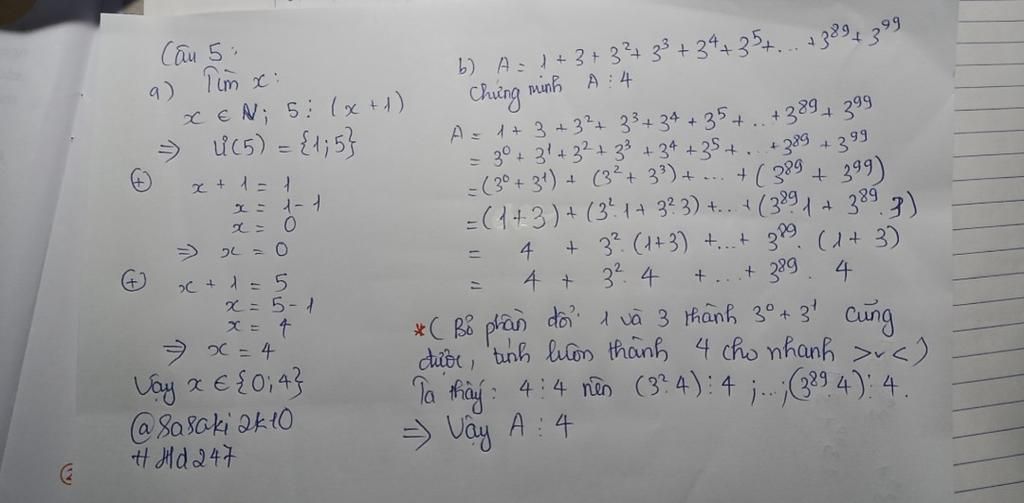 Câu 5:
a) Tìm x:
x ∈ N; 5 ⋮ (x + 1)
⇒ Ư(5) = {1; 5}
⊕ x + 1 = 1
x = 1 - 1
x = 0
⇒ x = 0
⊕ x + 1 = 5
x = 5 - 1
x = 4
⇒ x = 4
Vậy x ∈ {0; 4}
@Sasaki2k10
#Hd247
b) A = 1 + 3 + 3² + 3³ + 3⁴ + 3⁵ + ... + 3⁸⁹ + 3⁹⁹
Chứng minh A ⋮ 4
A = 1 + 3 + 3² + 3³ + 3⁴ + 3⁵ + ... + 3⁸⁹ + 3⁹⁹
= 3⁰ + 3¹ + 3² + 3³ + 3⁴ + 3⁵ + ... + 3⁸⁹ + 3⁹⁹
= (3⁰ + 3¹) + (3² + 3³) + ... + (3⁸⁹ + 3⁹⁹)
= (1 + 3) + (3².1 + 3².3) + ... + (3⁸⁹.1 + 3⁸⁹.3)
= 4 + 3².(1+3) + ... + 3⁸⁹.(1 + 3)
= 4 + 3².4 + ... + 3⁸⁹.4
*( Bỏ phần đổi 1 và 3 thành 3⁰ + 3¹ cũng
được, tính luôn thành 4 cho nhanh >v<)
Ta thấy: 4 ⋮ 4 nên (3².4) ⋮ 4 ; ...; (3⁸⁹.4) ⋮ 4.
⇒ Vậy A ⋮ 4